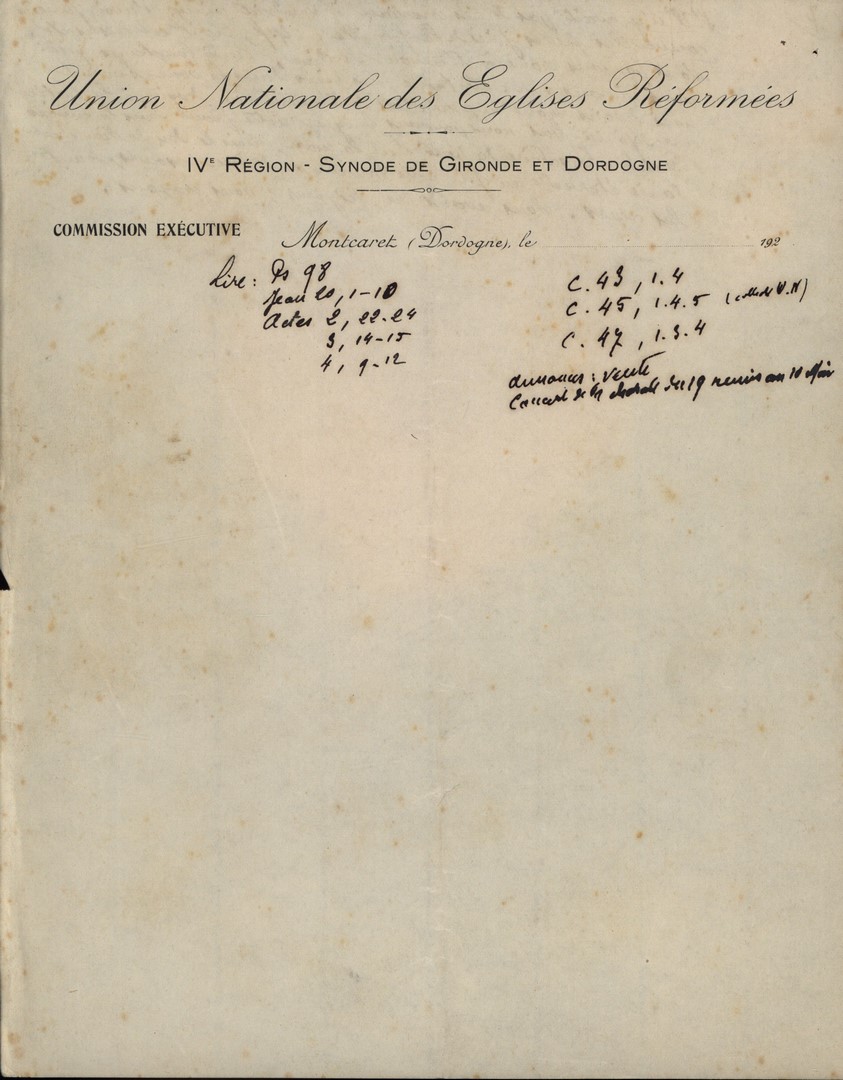 Union Nationale des Eglises Réformées
IVE RÉGION - SYNODE DE GIRONDE ET DORDOGNE
COMMISSION EXÉCUTIVE
Montcaret (Dordogne), le 192
Lire : Ps 98
Jean 20, 1-10
Actes 2, 22-24
3, 14-15
4, 9-12
C. 43, 1.4
C. 45, 1.4.5
C. 47, 1.3.4
Annonces : Vente
Concert de la chorale du 19 remis au 10 Mai